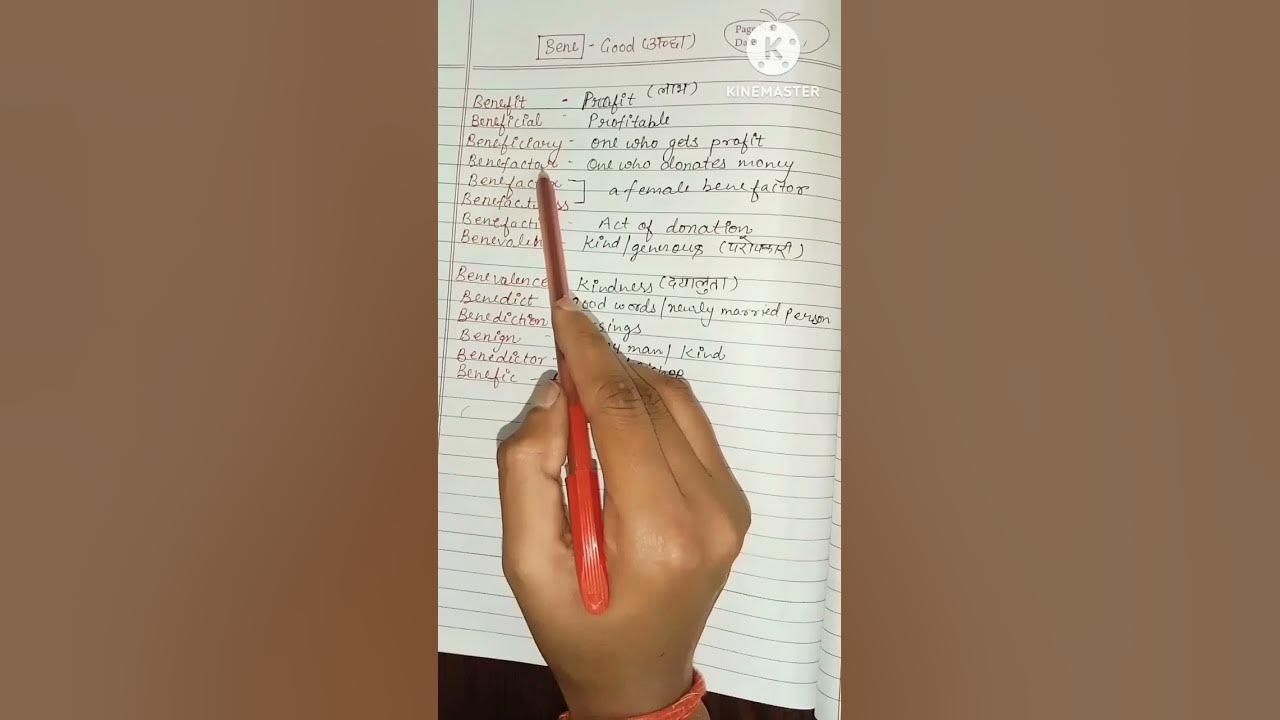 Bene - Good (अच्छा)
Page
Da
K
KINEMASTER
Benefit - Profit (लाभ)
Beneficial - Profitable
Beneficiary - one who gets profit
Benefactor - One who donates money
a female benefactor
Act of donation
Kind/generous (परोपकारी)
Benevalence Kindness (दयालुता)
Benedict words/newly married person
Benediction
Benign - man/ Kind
Benedictor -
Benefic -